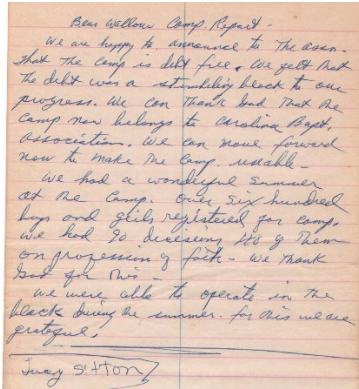 Bear Wallow Camp Report -
We are happy to announce to the assn.
that the camp is debt free. We felt that
the debt was a stumbling block to our
progress. We can thank God that the
camp now belongs to Carolina Bapt.
association. We can move forward
now to make the camp usable -
We had a wonderful summer
at the camp. Over six hundred
boys and girls registered for camp.
We had 90 decisions of them
on profession of faith - We thank
God for this -
We were able to operate in the
black during the summer. for this we are
grateful.
Sitton